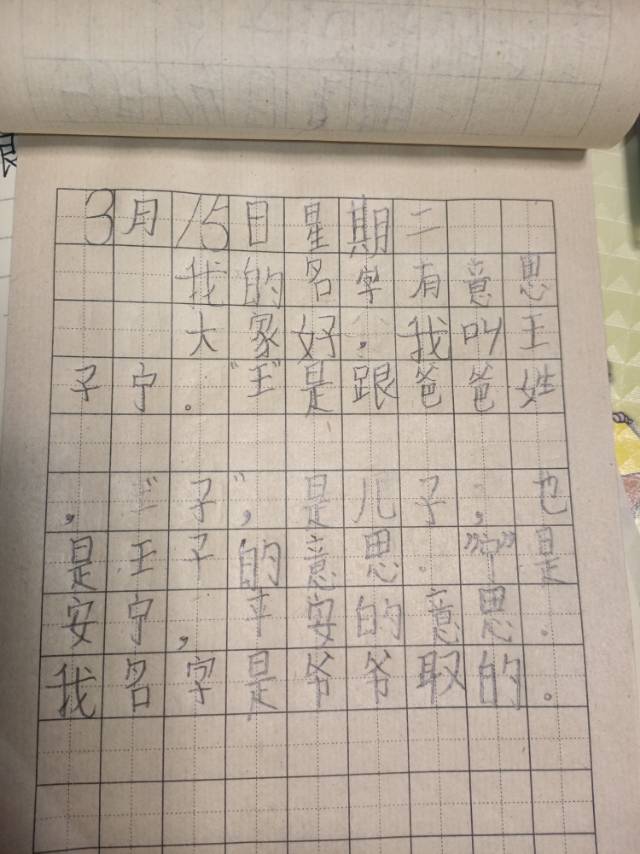 3月15日星期二
我的名字有意思
大家好,我叫王
子宁。“王”是跟爸爸姓
,“子”,是儿子,也
是王子的意思.”宁”是
安宁,平安的意思.
我名字是爷爷取的。